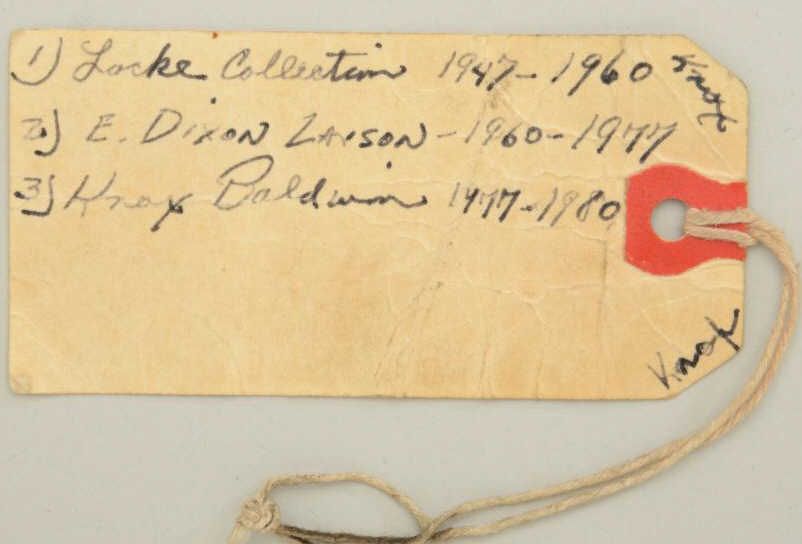 1) Locke Collection 1947-1960
2) E. Dixon Larson-1960-1977
3) Knox Baldwin 1977-1980
Knox
Knox